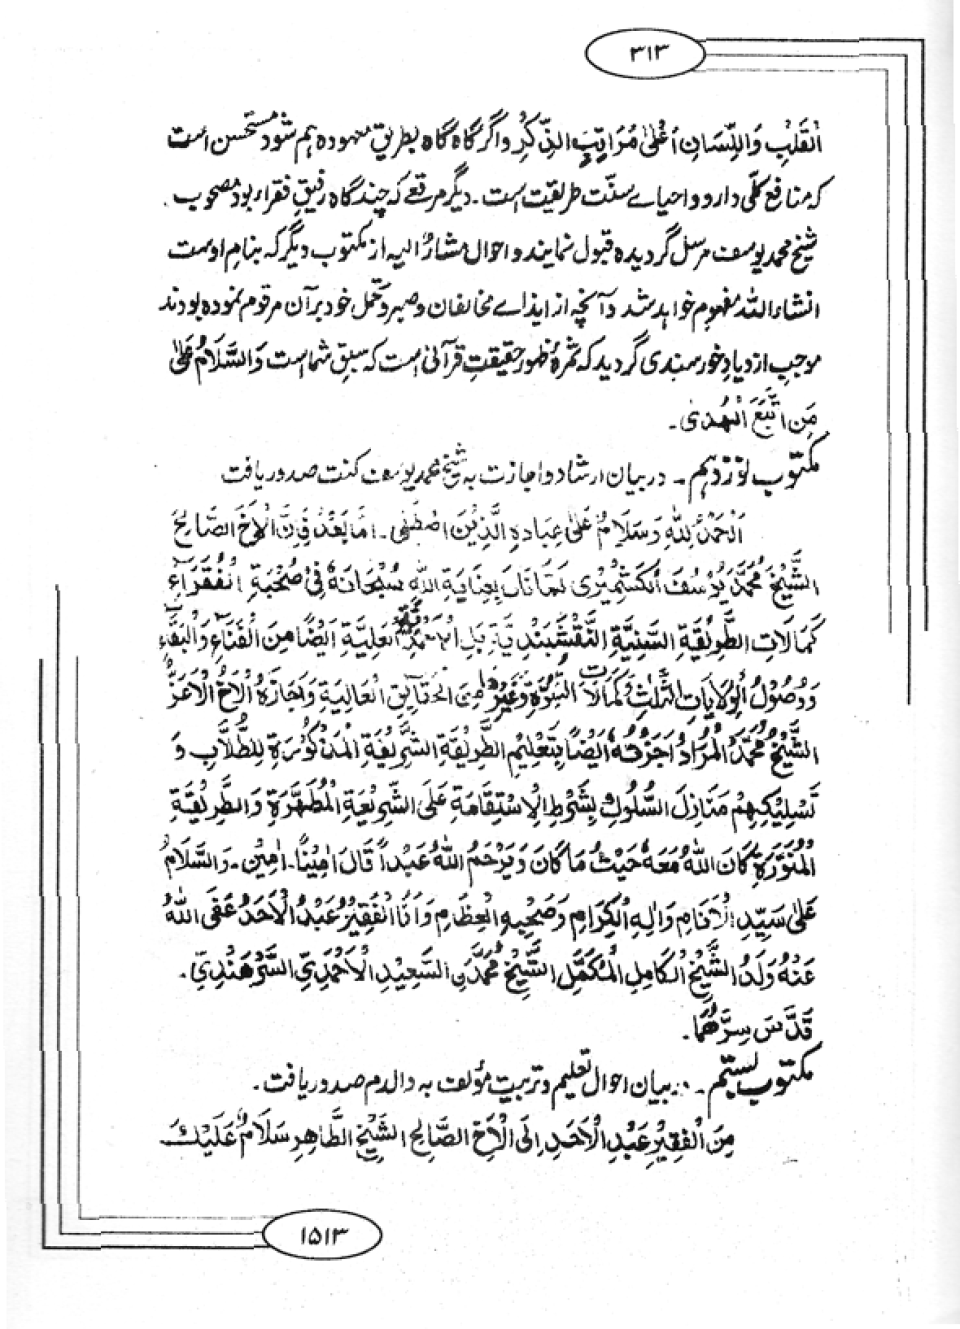 ۳۱۳
اَلْقَلْبِ وَاللِّسَانِ اَعْلیٰ مُرَاتِبِ الذِّكْرِ و اگر گاہ گاہ بطریقِ معہودہ ہم شود مستحسن است
کہ منافع کلّی دارد و احیاے سنّت طریقت است ۔ دیگر مرقعے کہ چند گاہ رفیقِ فقراء بود مصحوب
شیخ محمد یوسف مرسل گردیدہ قبول نمایند و احوال مشارٌ الیہ از مکتوب دیگر کہ بنام اوست
انشاء اللہ مفہوم خواہد شد و آنچہ از ایذاے مخالفان و صبر و تحمل خود بر آن مرقوم نمودہ بودند
موجب ازدیادِ خورسندی گردید کہ ثمرۂ ظہور حقیقتِ قرآنی است کہ سبق شما است وَالسَّلَامُ عَلیٰ
مَنِ اتَّبَعَ الْهُدیٰ ۔
مکتوب نوزدہم ۔ در بیان ارشاد و اجازت بہ شیخ محمد یوسف کنت صدور یافت
اَلْحَمْدُ لِلّٰهِ وَسَلَامٌ عَلیٰ عِبَادِهِ الَّذِیْنَ اصْطَفٰی ۔ اَمَّا بَعْدُ فَاِنَّ الْاَخَ الصَّالِحَ
الشَّیْخَ مُحَمَّدْ یُوْسُفَ الْکَشْمِیْرِی لَمَا نَالَ بِعِنَایَةِ اللّٰهِ سُبْحَانَهٗ فِیْ صُحْبَةِ الْفُقَرَاءِ
کَمَالَاتِ الطَّرِیْقَةِ السَّنِیَّةِ النَّقْشْبَنْدِیَّةِ بَلِ الْاَحْمَدِیَّةِ الْعَلِیَّةِ اَیْضًا مِنَ الْفَنَاءِ وَالْبَقَاءِ
وَ وُصُوْلُ الْوِلَایَاتِ الثَّلٰثِ وَ کَمَالَاتِ النُّبُوَّةِ وَغَیْرِهَا مِنَ الْحَقَایِقِ الْعَالِیَةِ وَ اَجَازَهُ الْاَخُ الْاَعَزُّ
الشَّیْخُ مُحَمَّدُ الْمُرَادُ اَجَزْتُهٗ اَیْضًا بِتَعْلِیْمِ الطَّرِیْقَةِ الشَّرِیْفَةِ الْمَذْکُوْرَةِ لِلطُّلَّابِ وَ
تَسْلِیْکِهِمْ مَنَازِلَ السُّلُوْكِ بِشَرْطِ الْاِسْتِقَامَةِ عَلَی الشَّرِیْعَةِ الْمُطَهَّرَةِ وَالطَّرِیْقَةِ
الْمُنَوَّرَةِ کَانَ اللّٰهُ مَعَهٗ حَیْثُ مَا کَانَ وَیَرْحَمُ اللّٰهُ عَبْداً قَالَ اٰمِیْنًا ۔ اٰمِیْن ۔ وَالسَّلَامُ
عَلیٰ سَیِّدِ الْاَنَامِ وَاٰلِهِ الْکِرَامِ وَصَحْبِهِ الْعِظَامِ وَاَنَا الْفَقِیْرُ عَبْدُ الْاَحَدُ عَفَی اللّٰهُ
عَنْهُ وَلَدُ الشَّیْخِ الْکَامِلِ الْمُکَمَّلِ الشَّیْخِ مُحَمَّدْ السَّعِیْدِ الْاَحْمَدِیِّ السَّرْهَنْدِیِّ ۔
قَدَّسَ سِرَّهُمَا ۔
مکتوب بستم ۔ در بیان احوال تعلیم و تربیت مؤلف بہ والدم صدور یافت ۔
مِنَ الْفَقِیْرِ عَبْدِ الْاَحَدِ اِلَی الْاَخِ الصَّالِحِ الشَّیْخِ الطَّاهِرِ سَلَامٌ عَلَیْكَ
۱۵۱۳